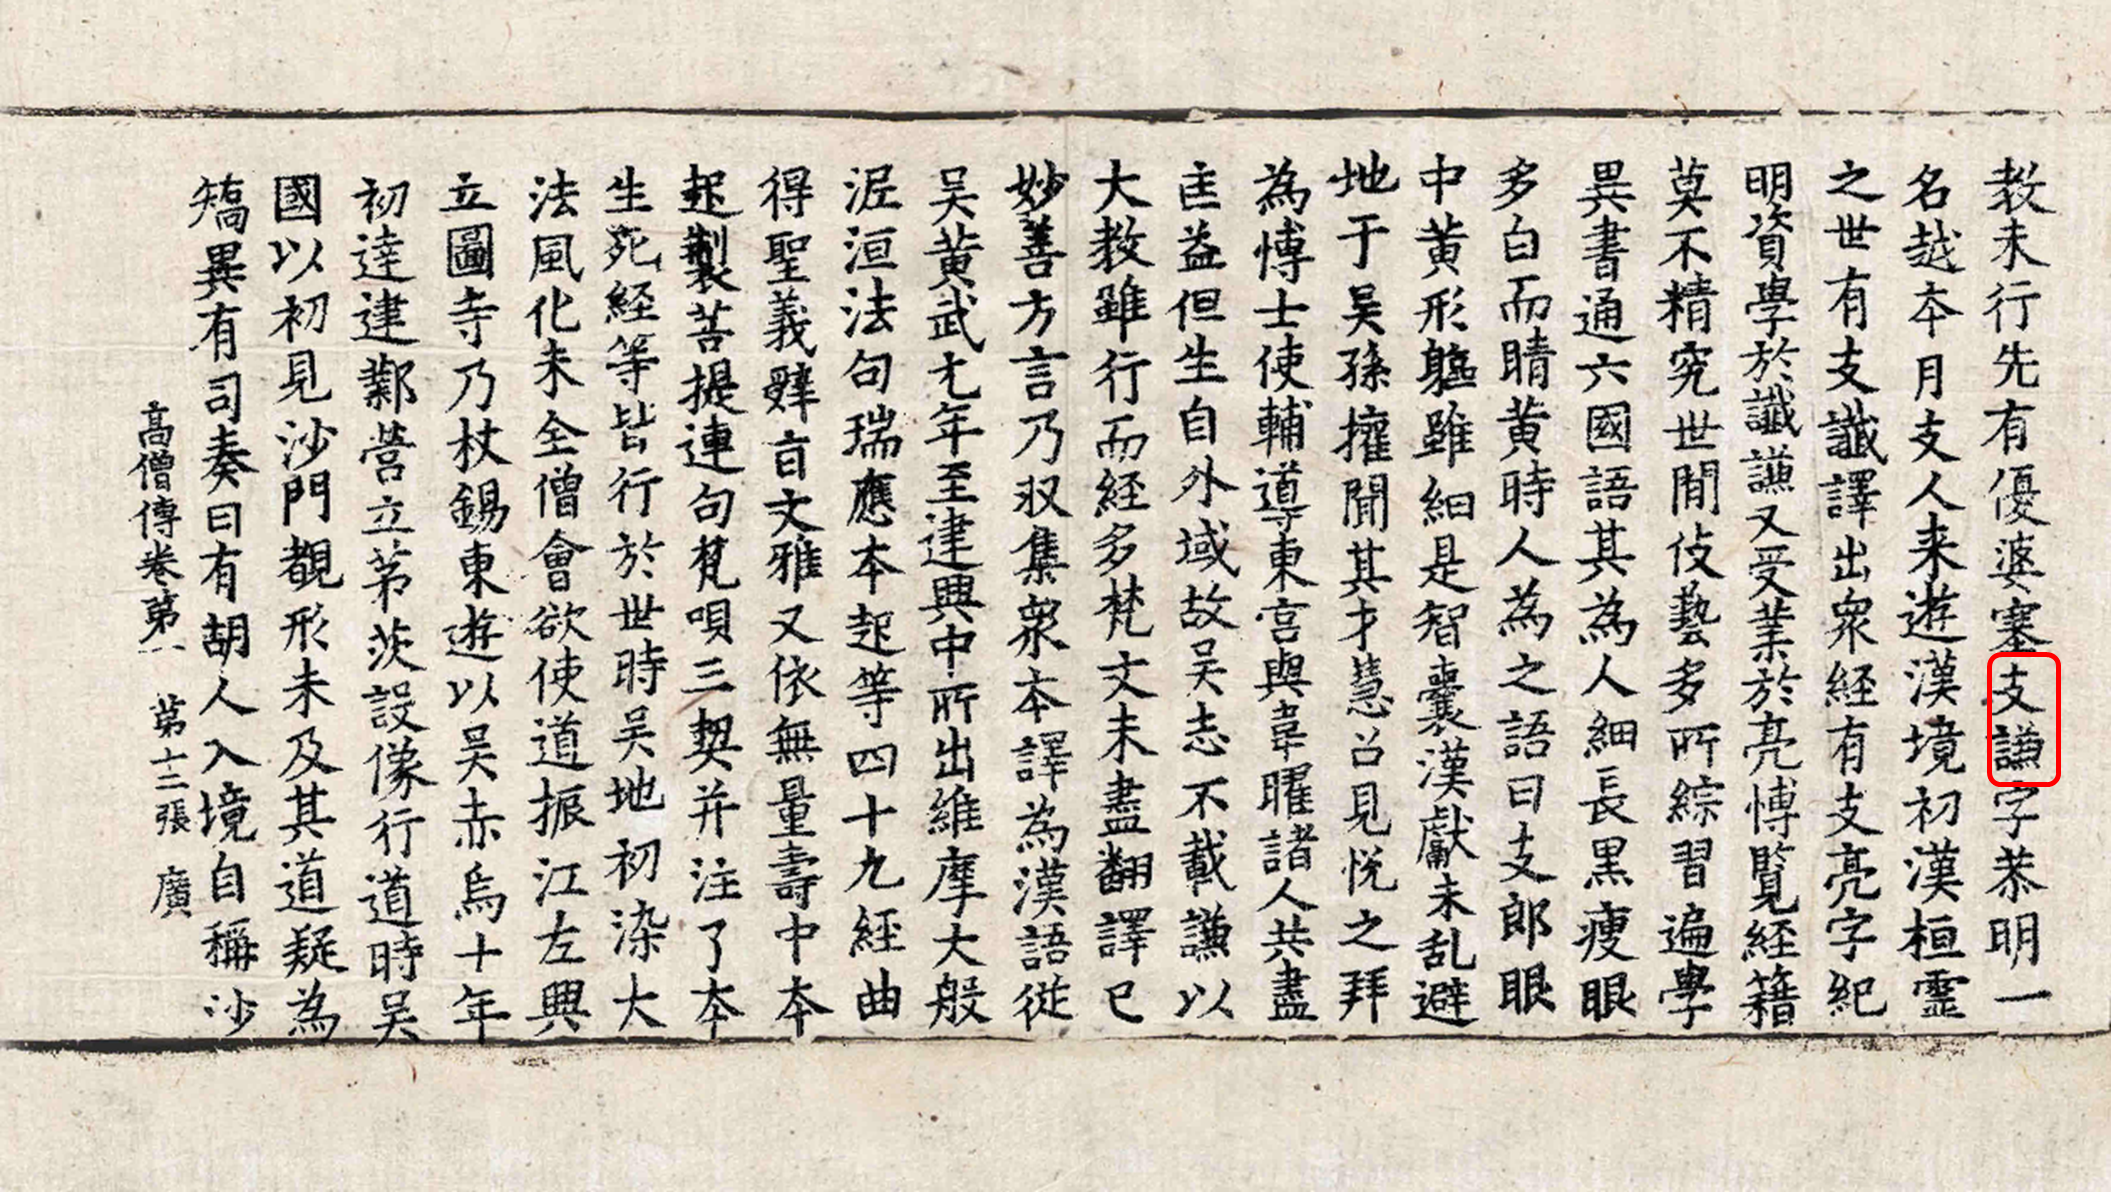 教未行先有優婆塞支謙字恭明一
名越本月支人来遊漢境初漢桓霊
之世有支讖譯出衆経有支亮字紀
明資學於讖謙又受業於亮博覧経籍
莫不精究世間伎藝多所綜習遍學
異書通六國語其為人細長黒瘦眼
多白而睛黄時人為之語曰支郎眼
中黄形軀雖細是智囊漢獻末乱避
地于吴孫權聞其才慧召見悅之拜
為博士使輔導東宫與韋曜諸人共盡
匡益但生自外域故吴志不載謙以
大教雖行而経多梵文未盡翻譯已
妙善方言乃収集衆本譯為漢語從
吴黄武尤年至建興中所出維摩大般
泥洹法句瑞應本起等四十九経曲
得聖義辝旨文雅又依無量壽中本
起製菩提連句梵唄三契并注了本
生死経等皆行於世時吴地初染大
法風化未全僧會欲使道振江左興
立圖寺乃杖錫東遊以吴赤烏十年
初達建鄴營立茅茨設像行道時吴
國以初見沙門覩形未及其道疑為
矯異有司奏曰有胡人入境自稱沙
高僧傳卷第一 第十二張 廣